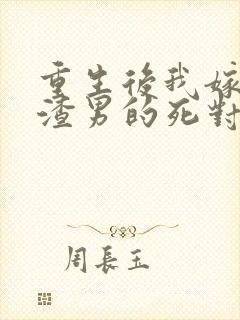 重生後我嫁
渣男的死對
周長玉